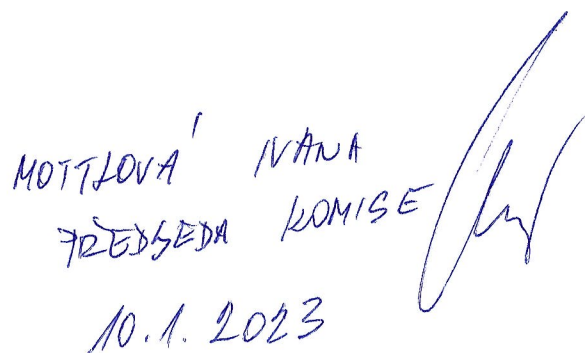 MOTTLOVÁ IVANA
PŘEDSEDA KOMISE
10.1.2023